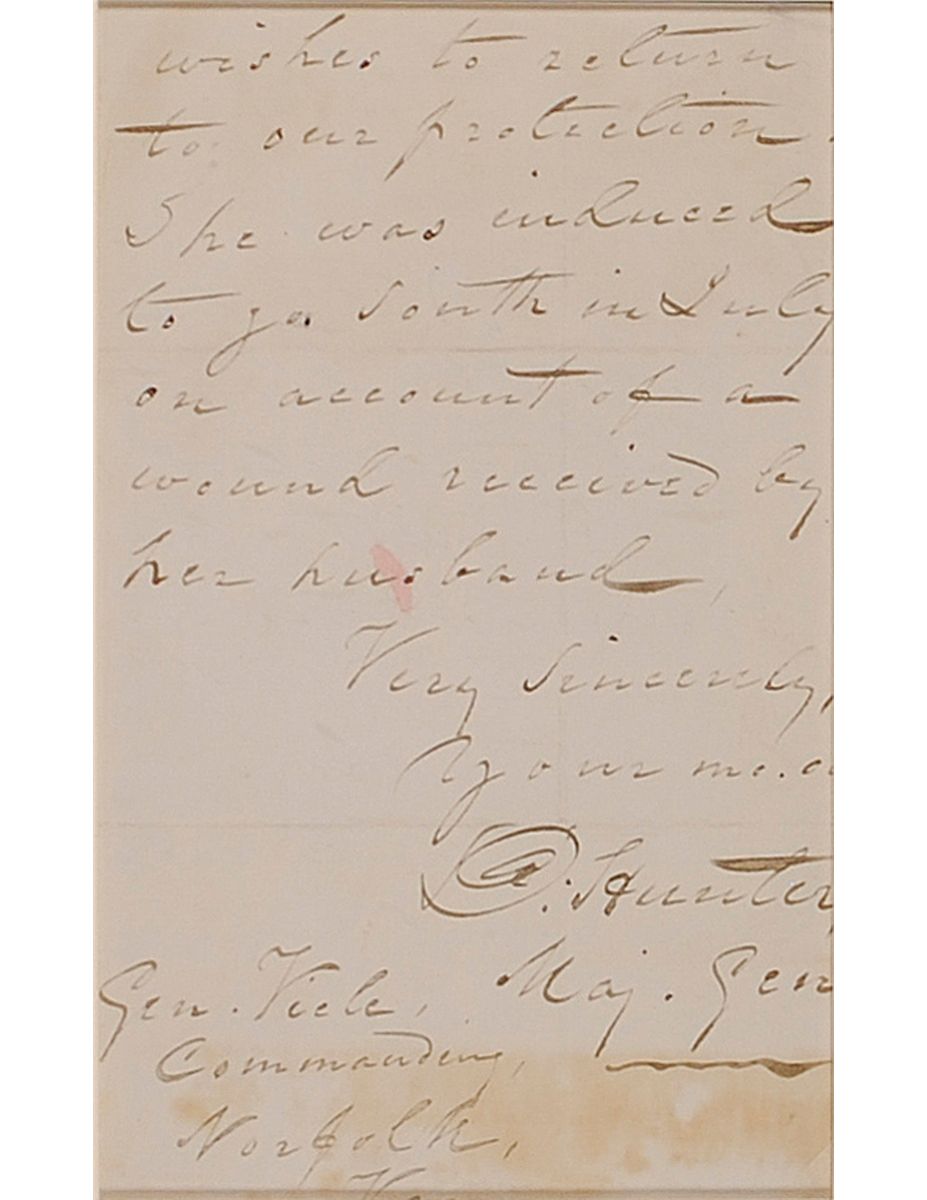 wishes to return
to our protection.
She was induced
to go South in July
on account of a
wound received by
her husband,
Very Sincerely,
Your mo. o
D. Hunter,
Maj. Gen
Gen. Viele,
Commanding,
Norfolk,